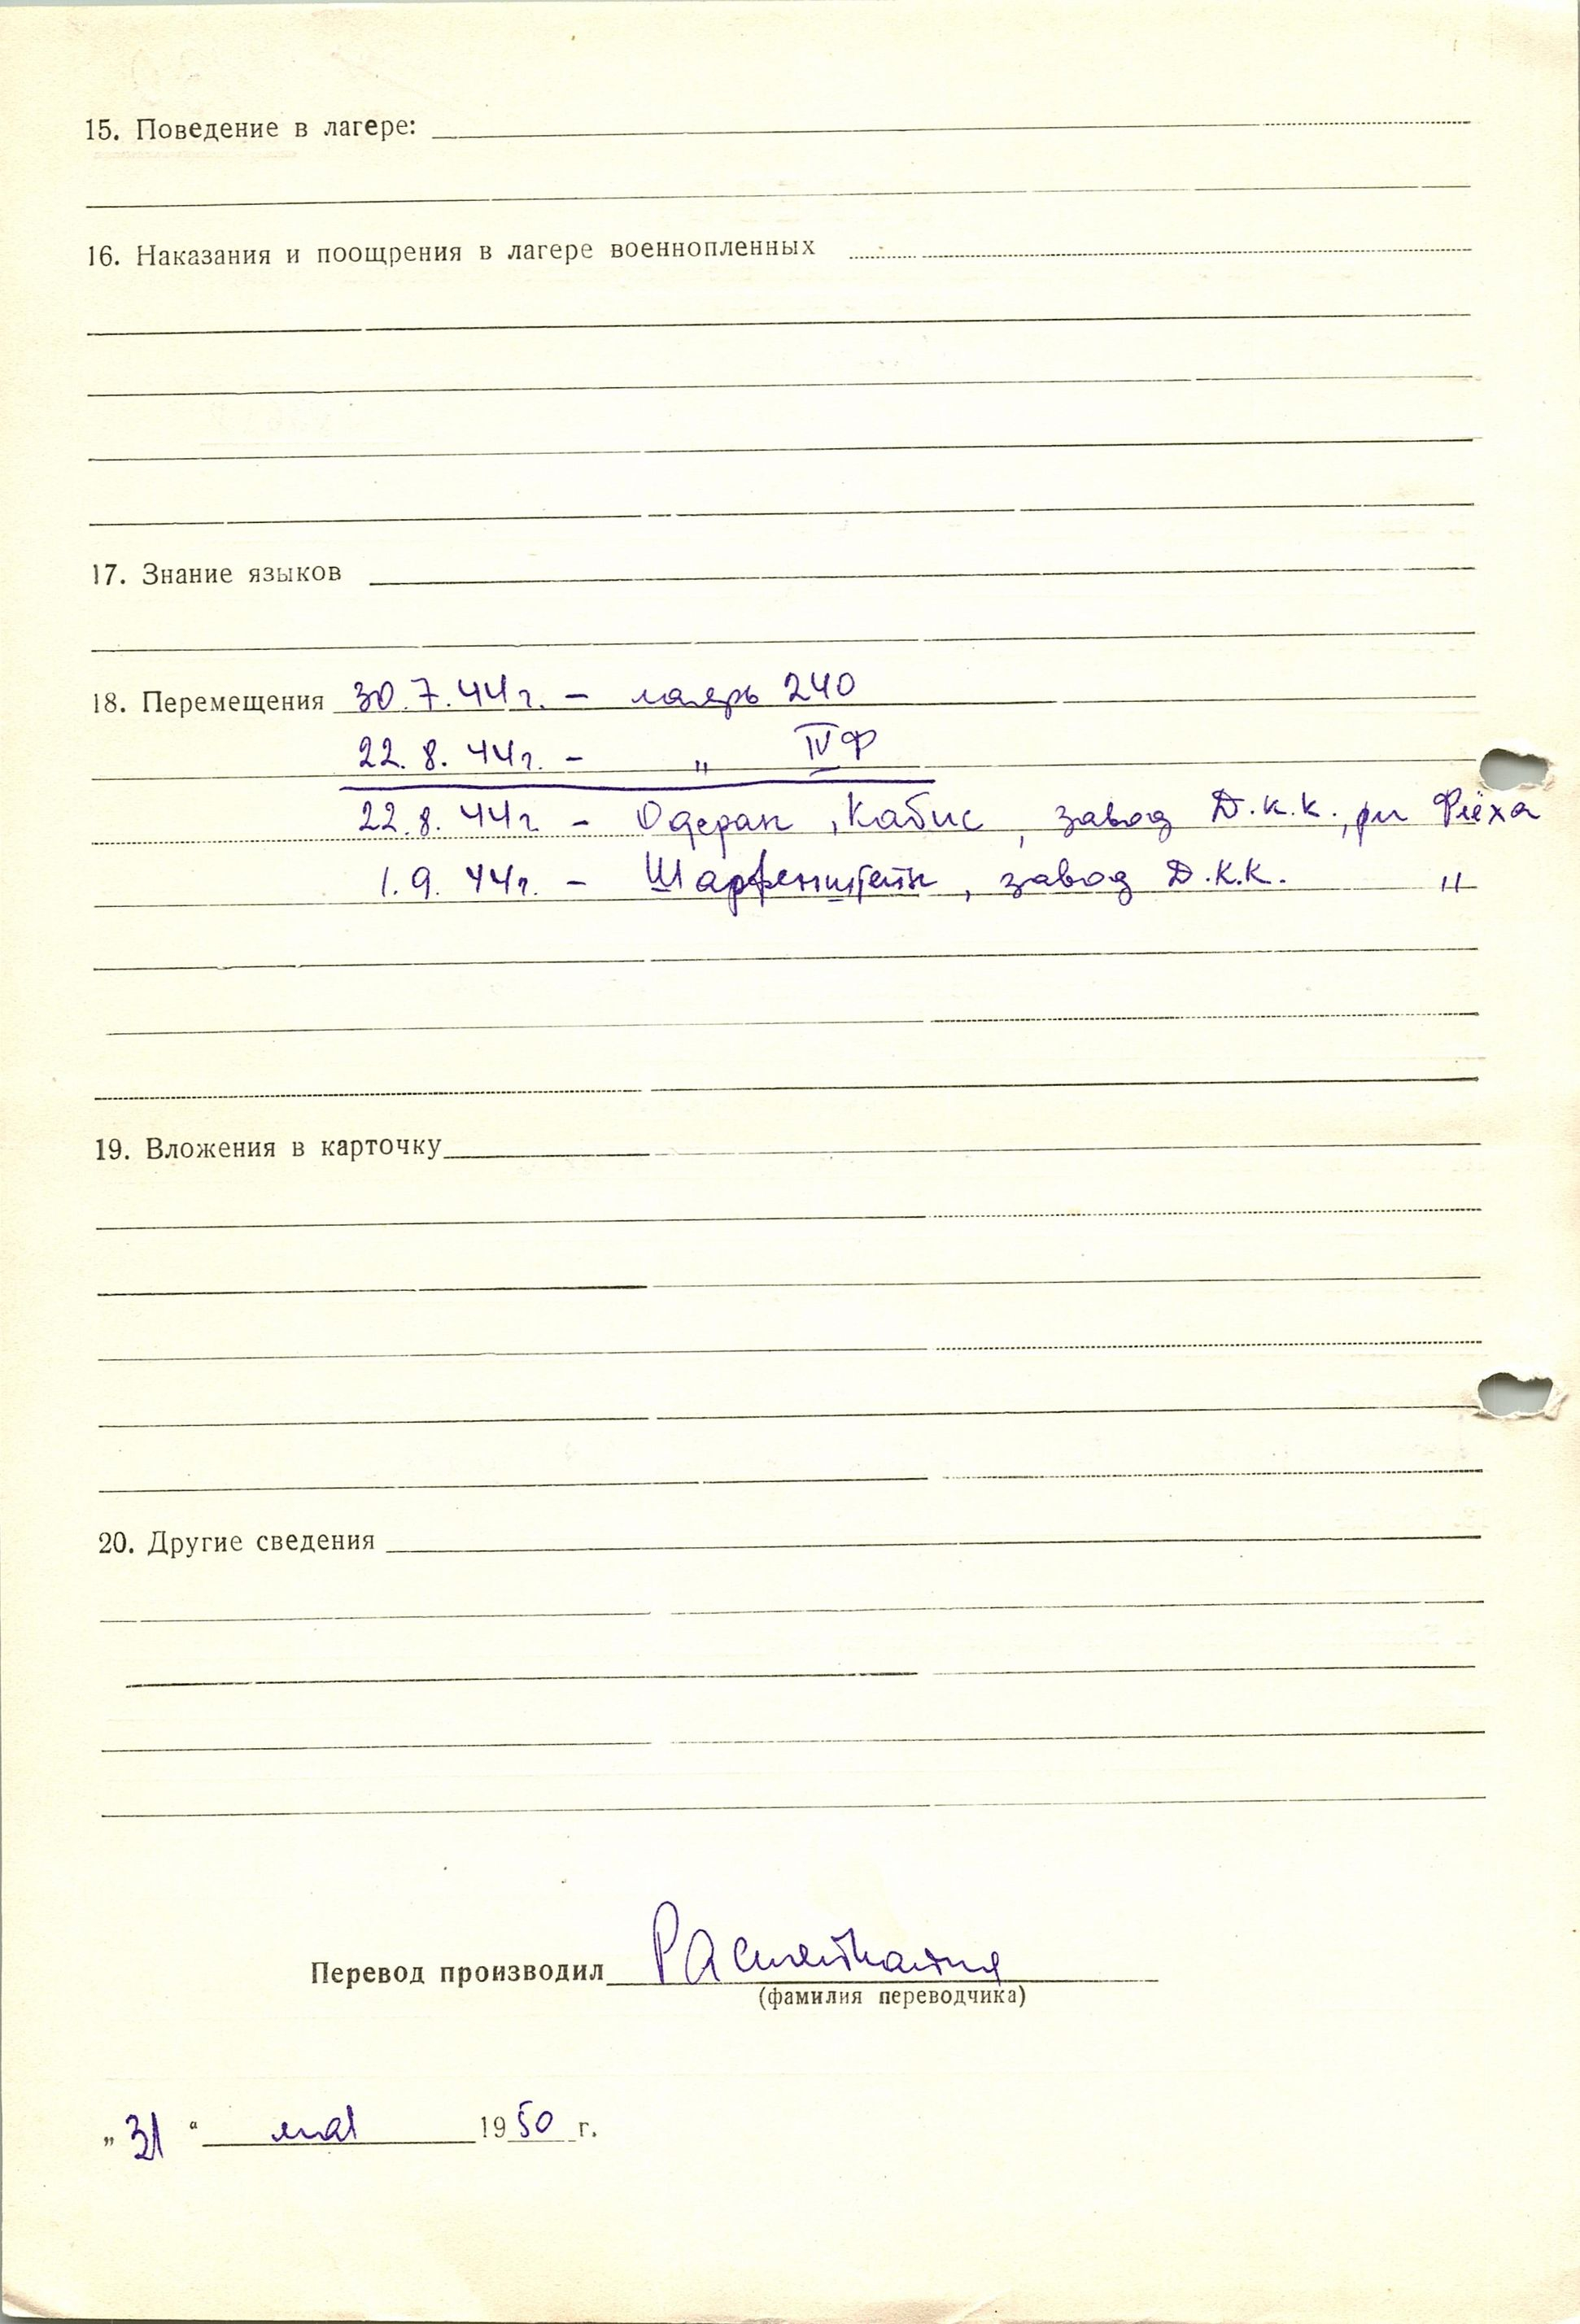 15. Поведение в лагере:
16. Наказания и поощрения в лагере военнопленных
17. Знание языков
18. Перемещения 30.7.44г. – лагерь 240
22.8.44г. – " IVФ
22.8.44г – Одеран, Кабис, завод Д.К.К., рн Флёха
1.9.44г. – Шарфенштейн, завод Д.К.К. "
19. Вложения в карточку
20. Другие сведения
Перевод производил
(фамилия переводчика)
„31“ мая 1950 г.